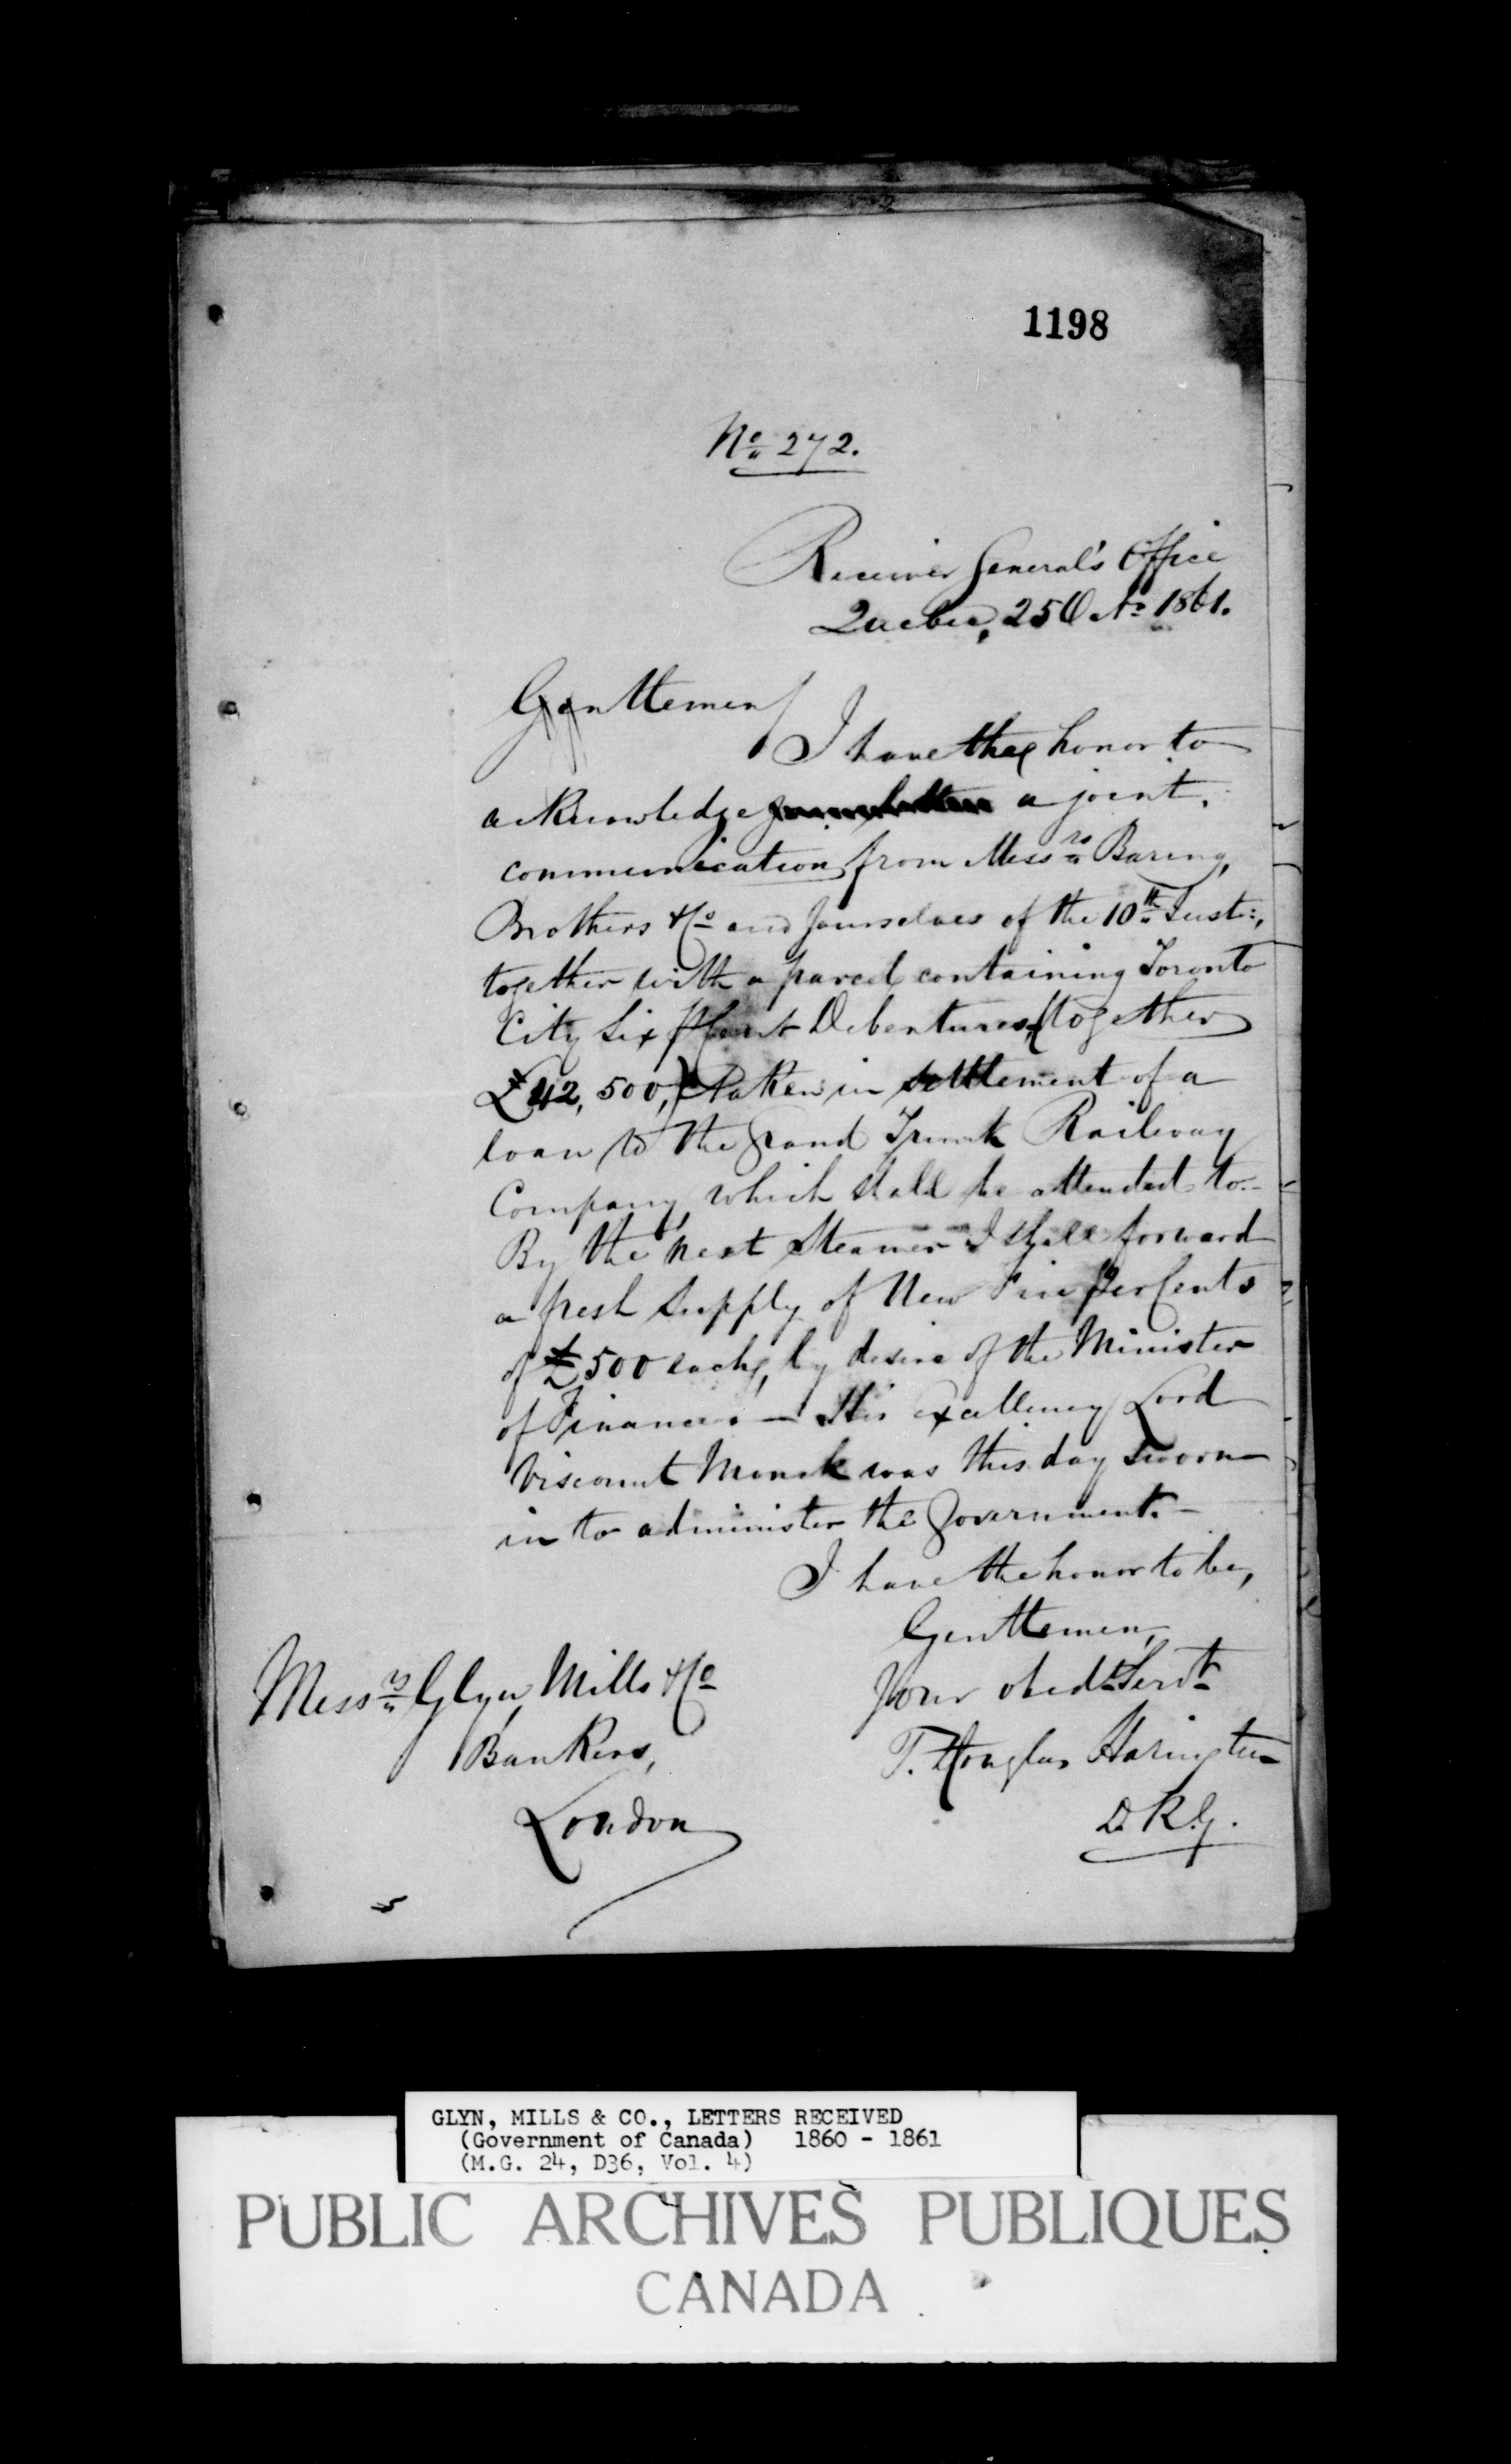 1198
No. 272.
Receiver General's Office
Quebec, 25 Oct. 1861.
Gentlemen,
I have the honor to
acknowledge a joint
communication from Messrs. Baring,
Brothers & Co and yourselves of the 10th Inst:,
together with a parcel containing Toronto
City Six P Cent Debentures, (together
£42,500,) taken in settlement of a
loan to the Grand Trunk Railway
Company, which shall be attended to.-
By the next Steamer I shall forward
a fresh supply of New Five Per Cents
of £500 each, by desire of the Minister
of Finance. - His Excellency Lord
Viscount Monck was this day sworn
in to administer the Government. -
I have the honor to be,
Gentlemen,
Your obedt. Servt.
Messrs. Glyn, Mills & Co
T. Douglas Harington
Bankers,
D.R.G.
London
GLYN, MILLS & CO., LETTERS RECEIVED
(Government of Canada) 1860 - 1861
(M.G. 24, D36, Vol. 4)
PUBLIC ARCHIVES PUBLIQUES
CANADA